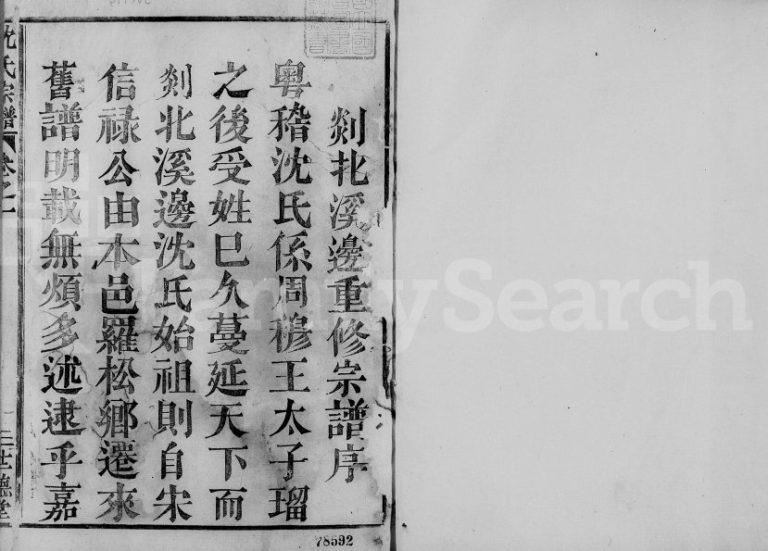 剡北溪邊重修宗譜序
粤稽沈氏係周穆王太子瑠
之後受姓巳久蔓延天下而
剡北溪邊沈氏始祖則自宋
信祿公由本邑羅松鄉遷來
舊譜明載無煩多述逮乎嘉
沈氏宗譜
卷之一
世德堂
78592
FamilySearch